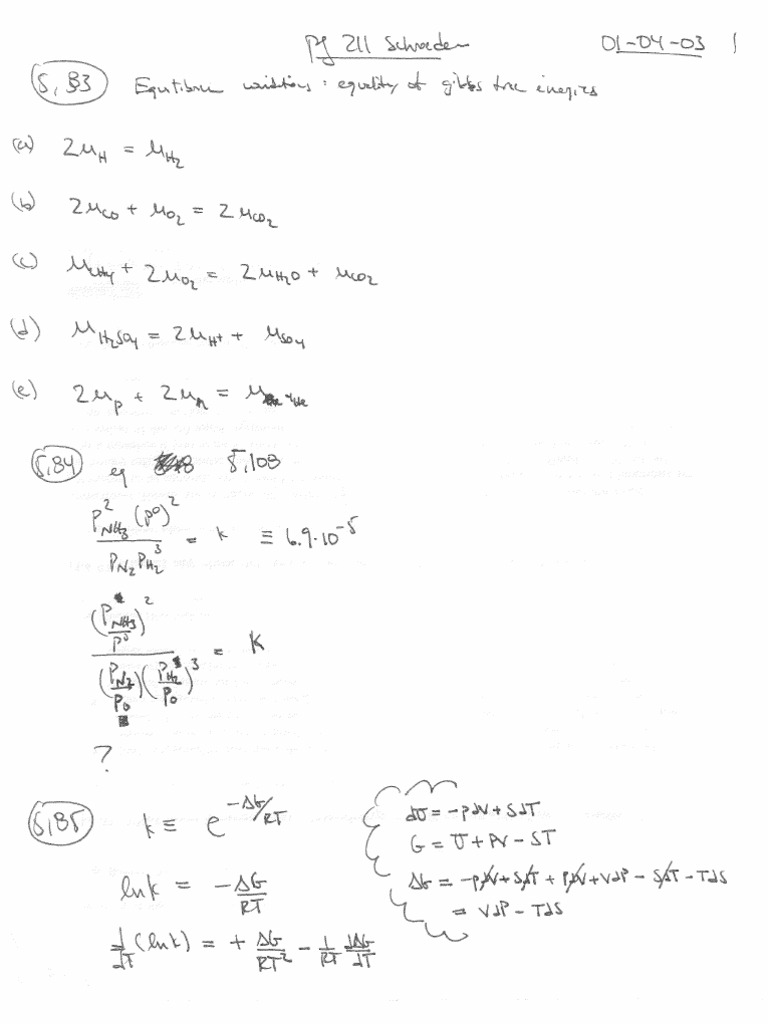 pg 211 Schroeder 01-04-03 1
5.83 Equilibrium conditions: equality of gibbs free energies
(a) 2μ_H = μ_H₂
(b) 2μ_CO + μ_O₂ = 2μ_CO₂
(c) μ_CH₄ + 2μ_O₂ = 2μ_H₂O + μ_CO₂
(d) μ_H₂SO₄ = 2μ_H⁺ + μ_SO₄
(e) 2μ_p + 2μ_n = μ_⁴He
5.84 eq 5.108
P²_NH₃ (P⁰)² / P_N₂ P³_H₂ = K ≡ 6.9·10⁻⁵
(P_NH₃/P⁰)² / (P_N₂/P₀)(P_H₂/P₀)³ = K
?
5.85 k ≡ e^(-ΔG/RT)
ln k = -ΔG/RT
d/dT (ln k) = + ΔG/RT² - 1/RT dΔG/dT
dU = -PdV + SdT
G = U + PV - ST
ΔG = -PdV + SdT + PdV + VdP - SdT - TdS
= VdP - TdS